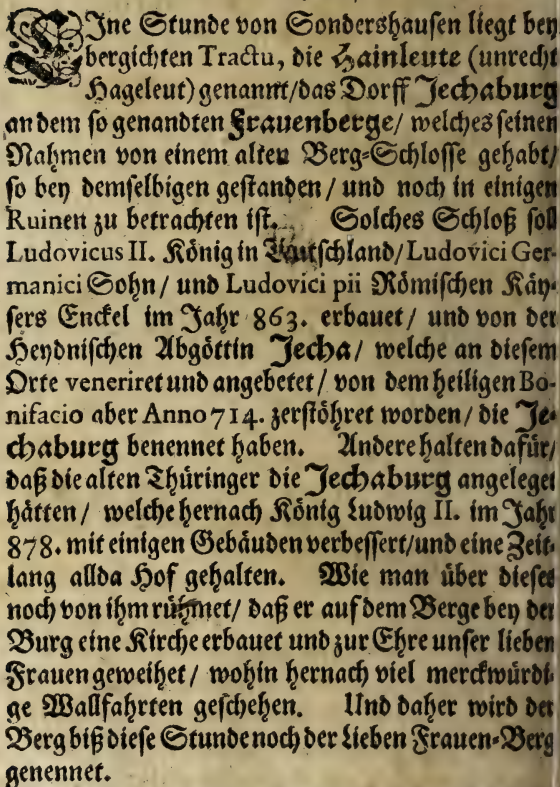 EIne Stunde von Sondershausen liegt bey
bergichten Tractu, die Hainleute (unrecht
Hageleut) genannt/das Dorff Jechaburg
an dem so genandten Frauenberge/ welches seinen
Nahmen von einem alten Berg-Schlosse gehabt/
so bey demselbigen gestanden / und noch in einigen
Ruinen zu betrachten ist. Solches Schloß soll
Ludovicus II. König in Teutschland/Ludovici Ger-
manici Sohn / und Ludovici pii Römischen Käy-
sers Enckel im Jahr 863. erbauet/ und von der
Heydnischen Abgöttin Jecha/ welche an diesem
Orte veneriret und angebetet / von dem heiligen Bo-
nifacio aber Anno 714. zerstöhret worden/ die Je-
chaburg benennet haben. Andere halten dafür/
daß die alten Thüringer die Jechaburg angeleget
hätten / welche hernach König Ludwig II. im Jahr
878. mit einigen Gebäuden verbessert/und eine Zeit-
lang allda Hof gehalten. Wie man über dieses
noch von ihm rühmet/ daß er auf dem Berge bey der
Burg eine Kirche erbauet und zur Ehre unser lieben
Frauen geweihet/ wohin hernach viel merckwürdi-
ge Wallfahrten geschehen. Und daher wird der
Berg biß diese Stunde noch der Lieben Frauen-Berg
genennet.